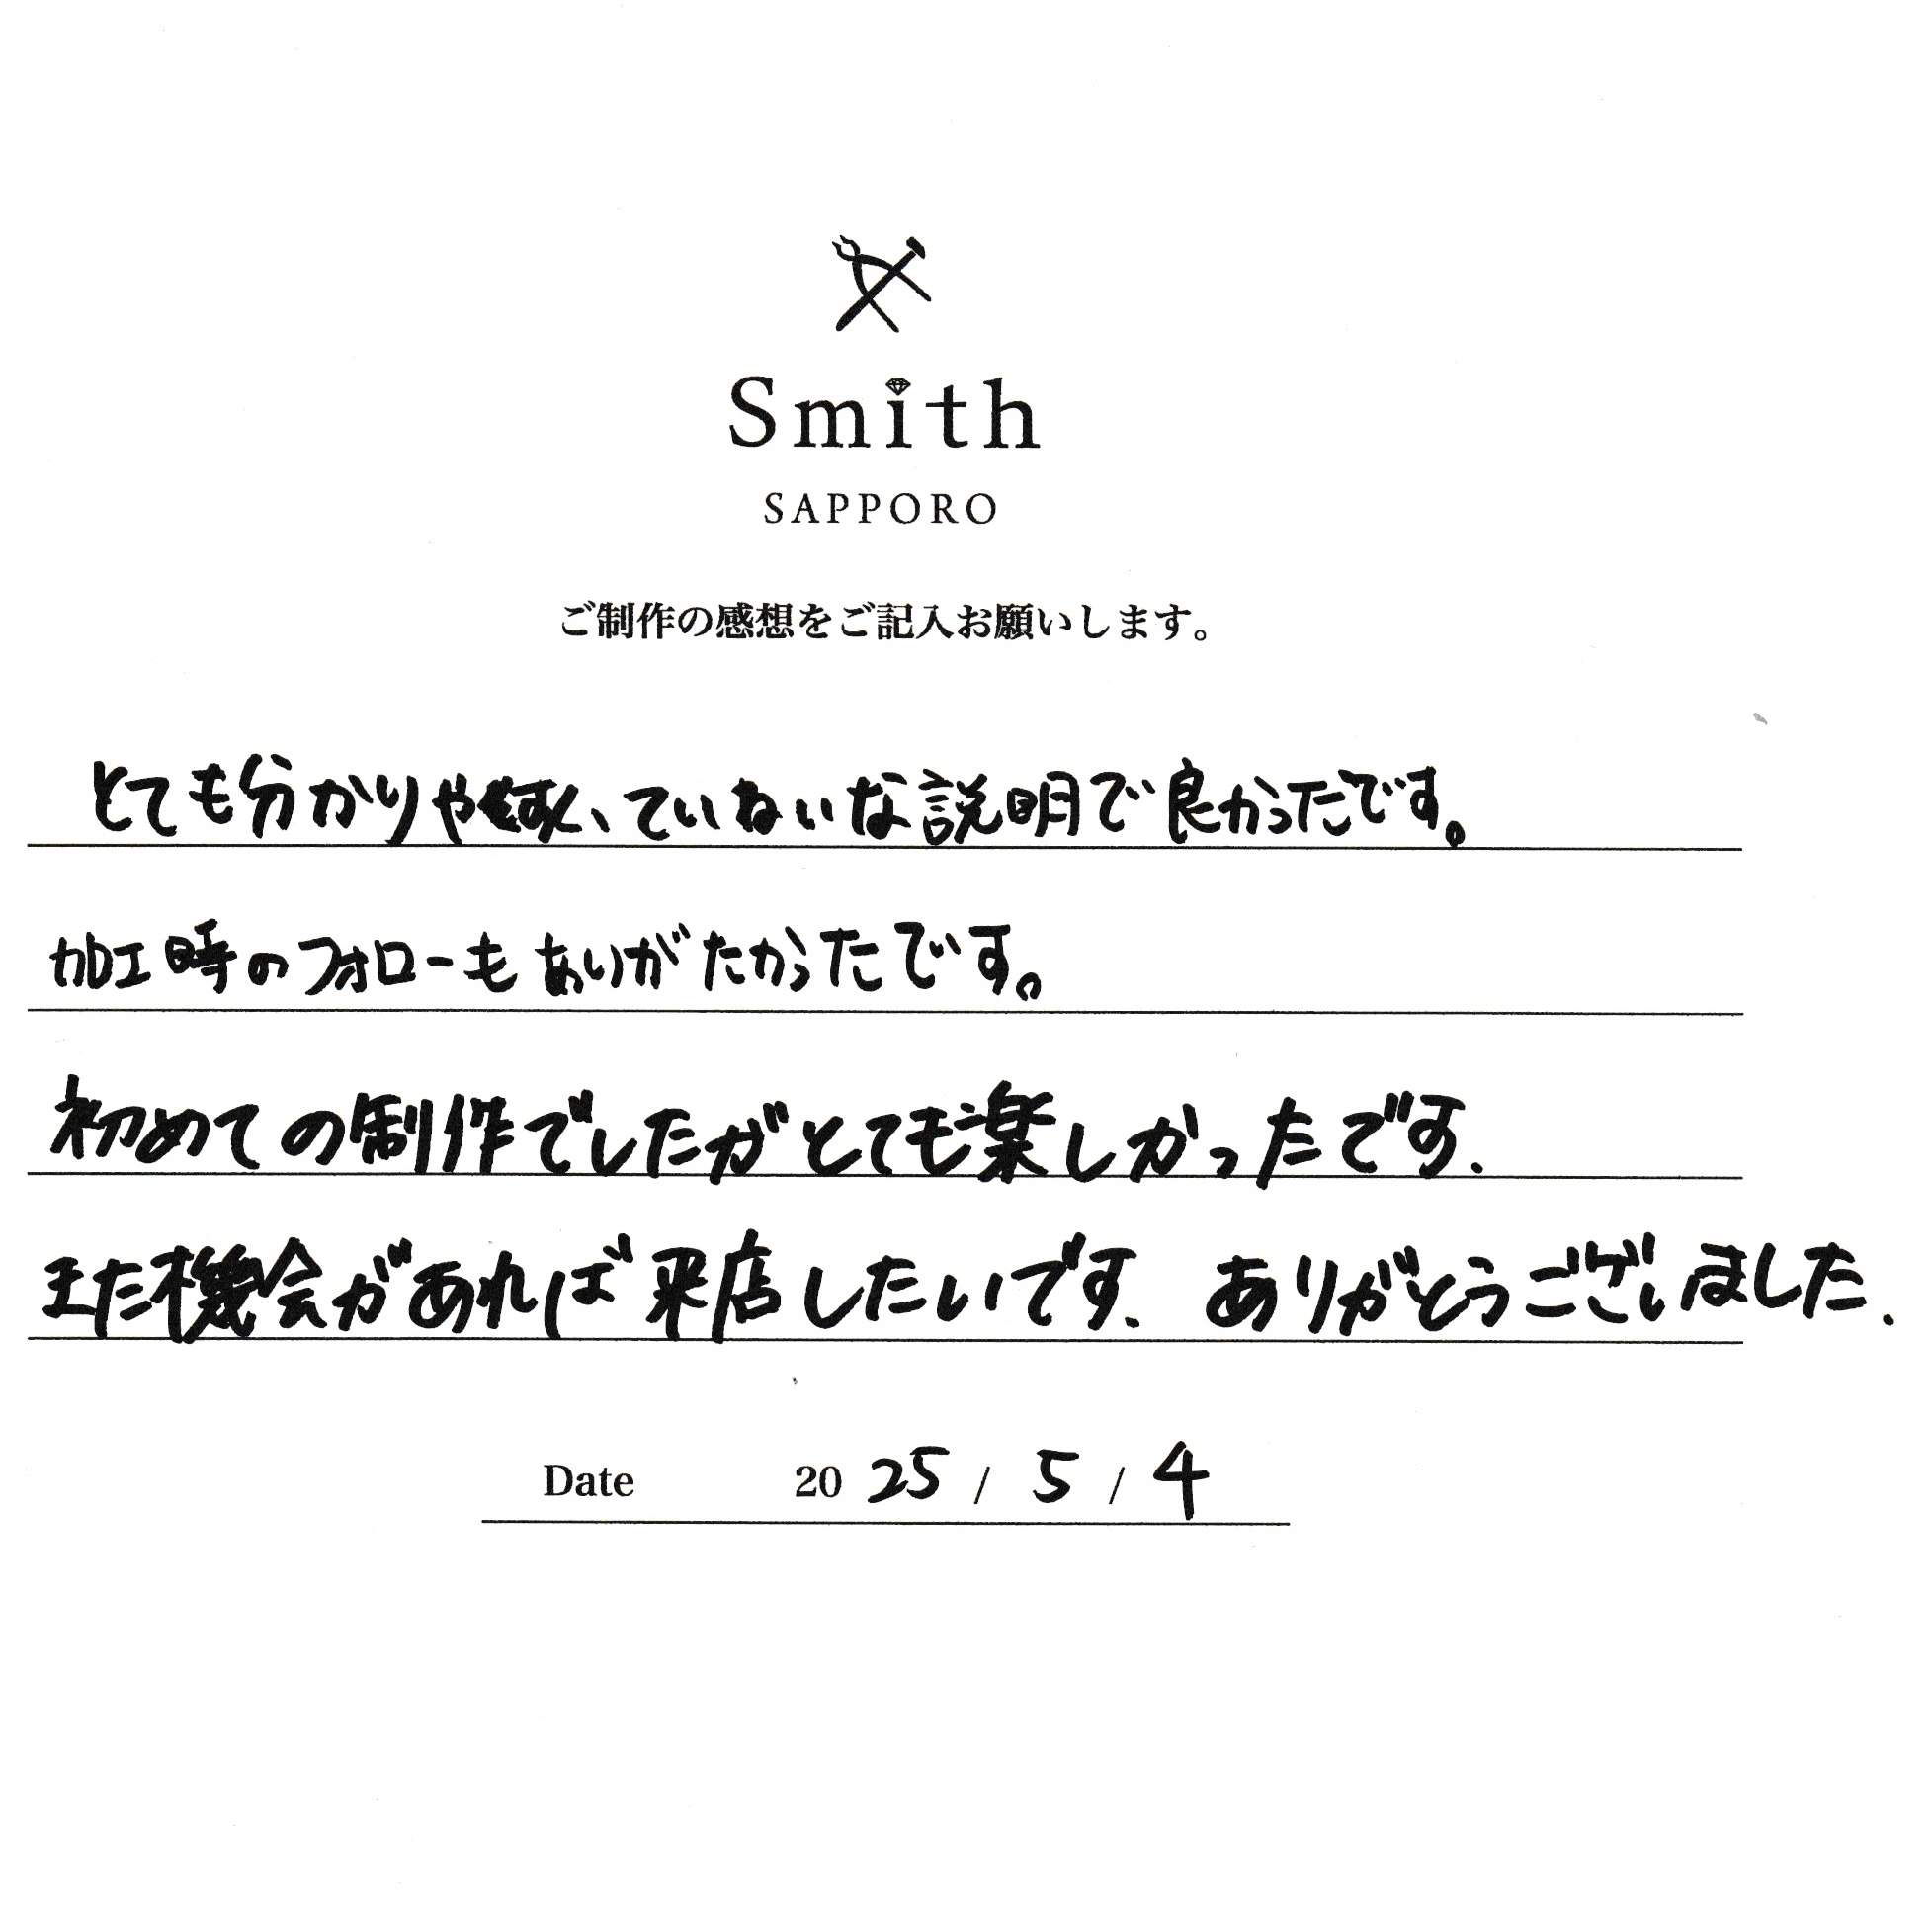 Smith
SAPPORO
ご制作の感想をご記入お願いします。
とても分かりやすく、ていねいな説明で良かったです。
加工時のフォローもありがたかったです。
初めての制作でしたがとても楽しかったです.
また機会があれば来店したいです. ありがとうございました.
Date 2025 / 5 / 4